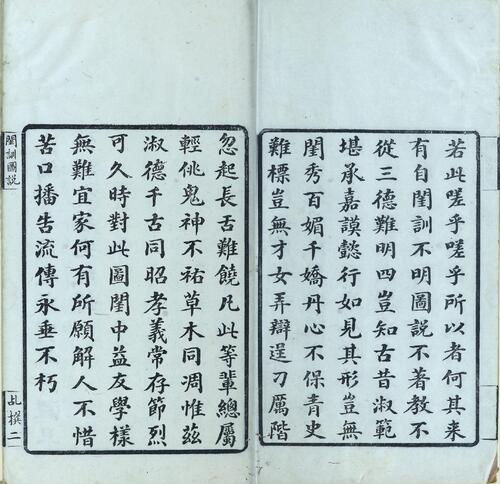 若此嗟乎嗟乎所以者何其来
有自閨訓不明圖說不著教不
從三德難明四豈知古昔淑範
堪承嘉謨懿行如見其形豈無
閨秀百媚千嬌丹心不保青史
難標豈無才女弄辯逞刁厲階
忽起長舌難饒凡此等輩總屬
輕佻鬼神不祐草木同凋惟茲
淑德千古同昭孝義常存節烈
可久時對此圖閨中益友學樣
無難宜家何有所願解人不惜
苦口播告流傳永垂不朽
閨訓圖說
乩撰二